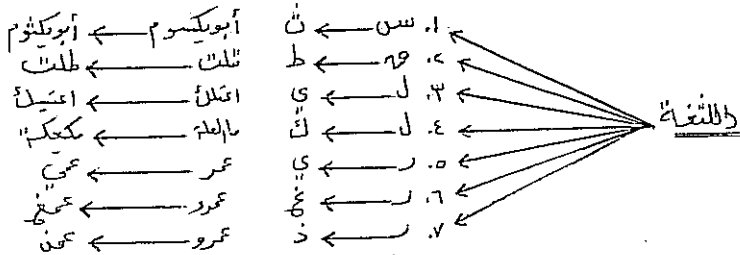 ١. س ← ث أبويكسوم ← أبويكثوم
٢. ق ← ط قلت ← طلت
٣. ل ← ي اعتلل ← اعتييك
٤. ل ← ك ما العلة ← مكعكة
اللثغة
٥. ر ← ي عمر ← عمي
٦. ر ← غ عمرو ← عمغ
٧. ر ← ذ عمرو ← عمذ